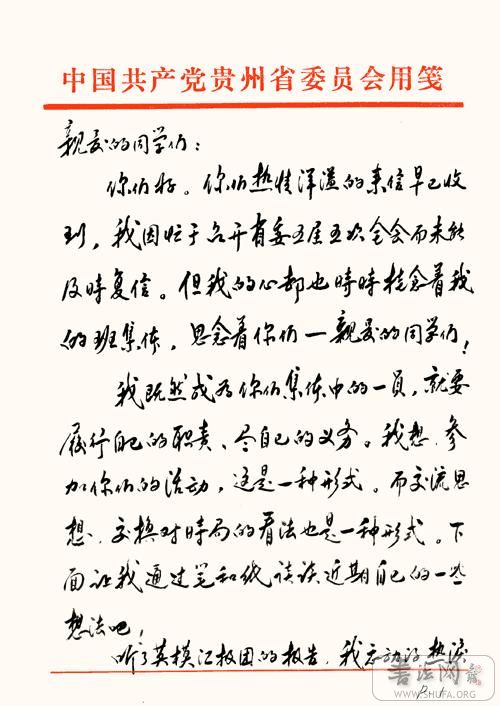 中国共产党贵州省委员会用笺
亲爱的同学们：
你们好。你们热情洋溢的来信早已收
到，我因忙于召开省委五届五次全会而未能
及時复信。但我的心却也時時挂念着我
的班集体，思念着你们—亲爱的同学们！
我既然成为你们集体中的一员，就要
履行自己的职责、尽自己的义务。我想，参
加你们的活动，这是一种形式。而交流思
想、交换对時局的看法也是一种形式。下
面让我通过笔和纸谈谈近期自己的一些
想法吧！
听了英模汇报团的报告，我感动得热泪
P.1
書法网
WWW.SHUFA.ORG